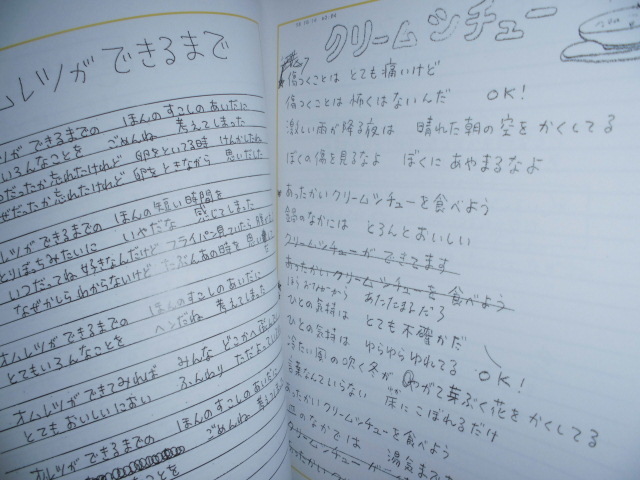 ムレツが できるまで
ツが できるまでの ほんのすこしのあいだに
いろんなことを ごめんね 考えてしまった
だったか忘れたけれど 卵をといてる時 けんかしたね
ぜだったか忘れたけれど 卵をときながら 思いだした
ツができるまでの ほんの短い時間を
とりぼっちみたいに いやだな 感じてしまった
いつだってね 好きなんだけど フライパン見ていたら
なぜかしら わからないけど たぶんあの時を思い
オムレツができるまでの ほんのすこしのあいだに
とてもいろんなことを ヘンだね 考えてしまった
オムレツができてみれば みんな どこかへ
とてもおいしいにおい ふんわり ただよってい
オムレツができるまでの ほんのすこしのあいだに
ごめんね
クリームシチュー
傷つくことは とても痛いけど
傷つくことは 怖くはないんだ OK!
激しい雨が降る夜は 晴れた朝の空をかくしてる
ぼくの傷を見るなよ ぼくにあやまるなよ
あったかいクリームシチューを食べよう
鍋のなかには とろんとおいしい
クリームシチューができてます
あったかいクリームシチューを食べよう
あたたまるだろ
ひとの気持は とても不確かだ
ひとの気持は ゆらゆらゆれてる OK!
冷たい風の吹く冬が やがて芽ぶく花をかくしてる
言葉なんていらない 床にこぼれるだけ
あったかいクリームシチューを食べよう
皿のなかでは 湯気まで
クリームシチューが
あったかい